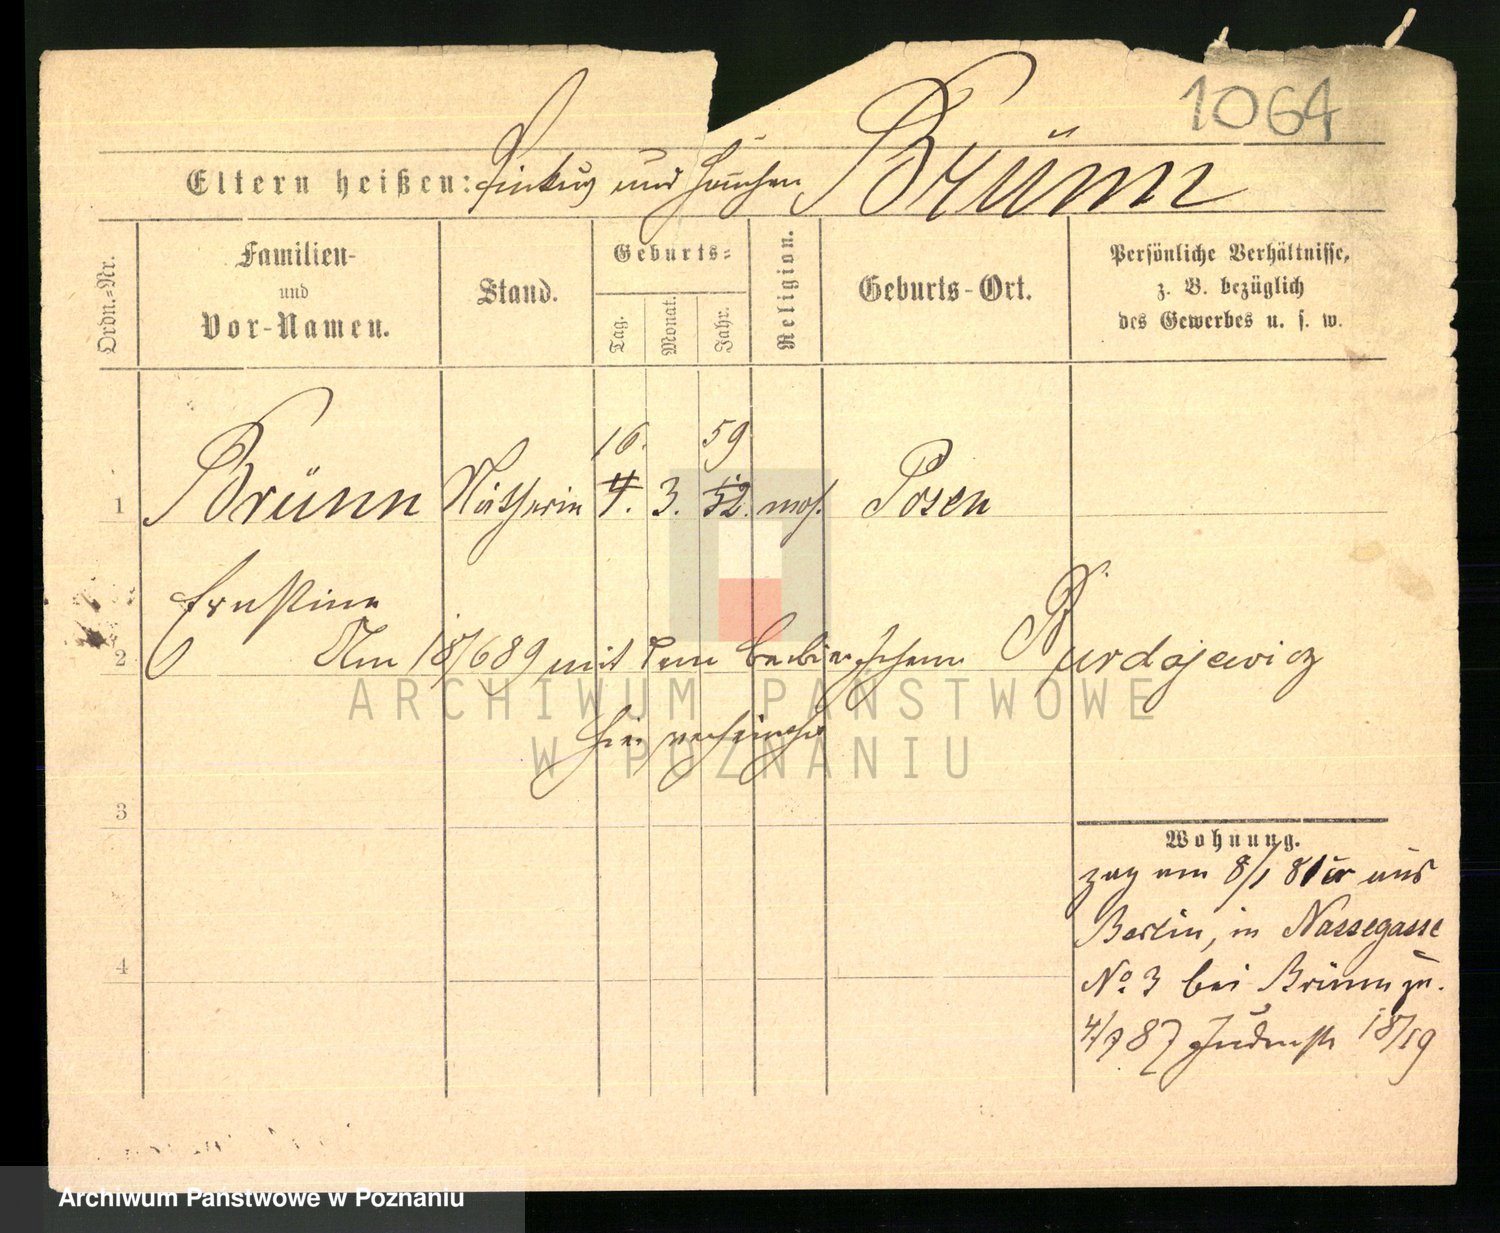 1064
Eltern heißen: Pinkus und Hannchen Brünn
Ordn.=Nr.
Familien-
und
Vor-Namen.
Stand.
Geburts=
Tag.
Monat.
Jahr.
Religion.
Geburts-Ort.
Persönliche Verhältnisse,
z. B. bezüglich
des Gewerbes u. s. w.
16. 59
1 Brünn Nätherin 4. 3. 52. mos. Posen
Ernstine
2 Am 18/6 89 mit dem Barbier Burdajewicz
hier
3
Wohnung.
zog am 8/1 81 aus
Berlin, in Nassegasse
No. 3 bei Brünn zu.
4
4/7 87 Judenstr 18/19
ARCHIWUM PAŃSTWOWE
W POZNANIU
Archiwum Państwowe w Poznaniu